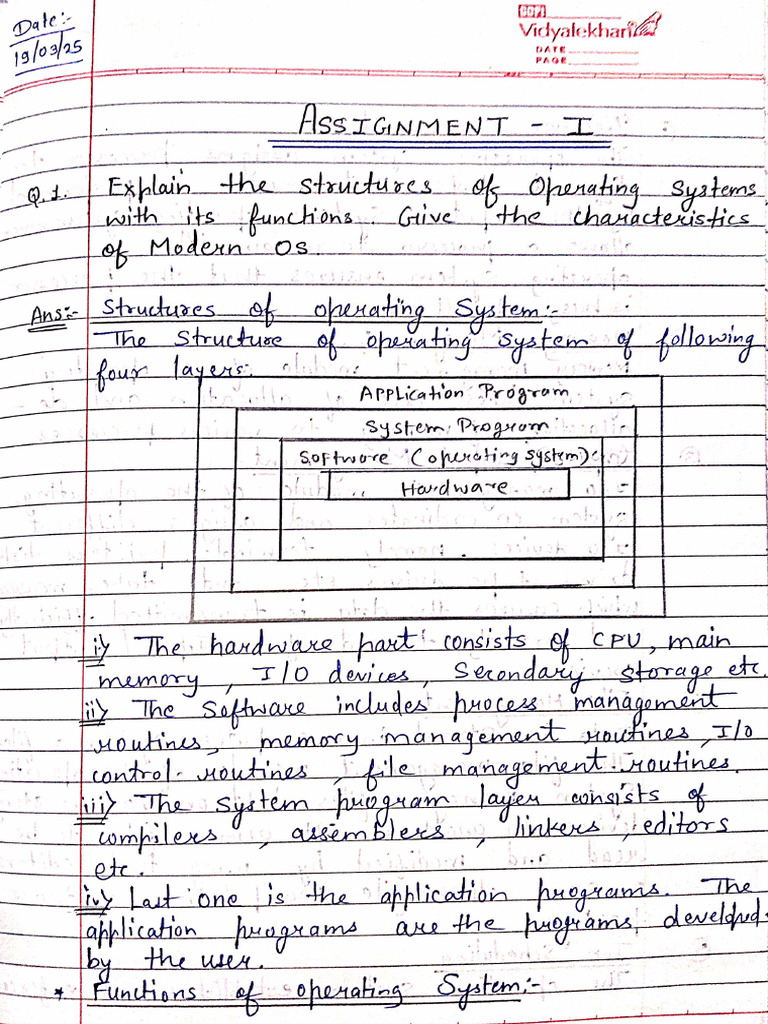 Date:-
19/03/25
COPY
Vidyalekhan
DATE
PAGE
ASSIGNMENT - I
Q.1. Explain the structures of Operating Systems
with its functions. Give the characteristics
of Modern OS.
Ans:- Structures of operating System:-
The Structure of operating system of following
four layers.
Application Program
System Program
Software (operating system).
Hardware
i) The hardware part consists of CPU, main
memory, I/O devices, Secondary storage etc.
ii) The Software includes process management
routines, memory management routines, I/O
control routines, file management routines.
iii) The System program layer consists of
compilers, assemblers, linkers, editors
etc.
iv) Last one is the application programs. The
application programs are the programs developed
by the user.
* Functions of operating System:-